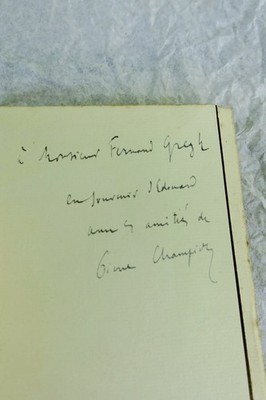 à Monsieur Fernand Gregh
en souvenir d'Edouard
avec les amitiés de
Pierre Champion